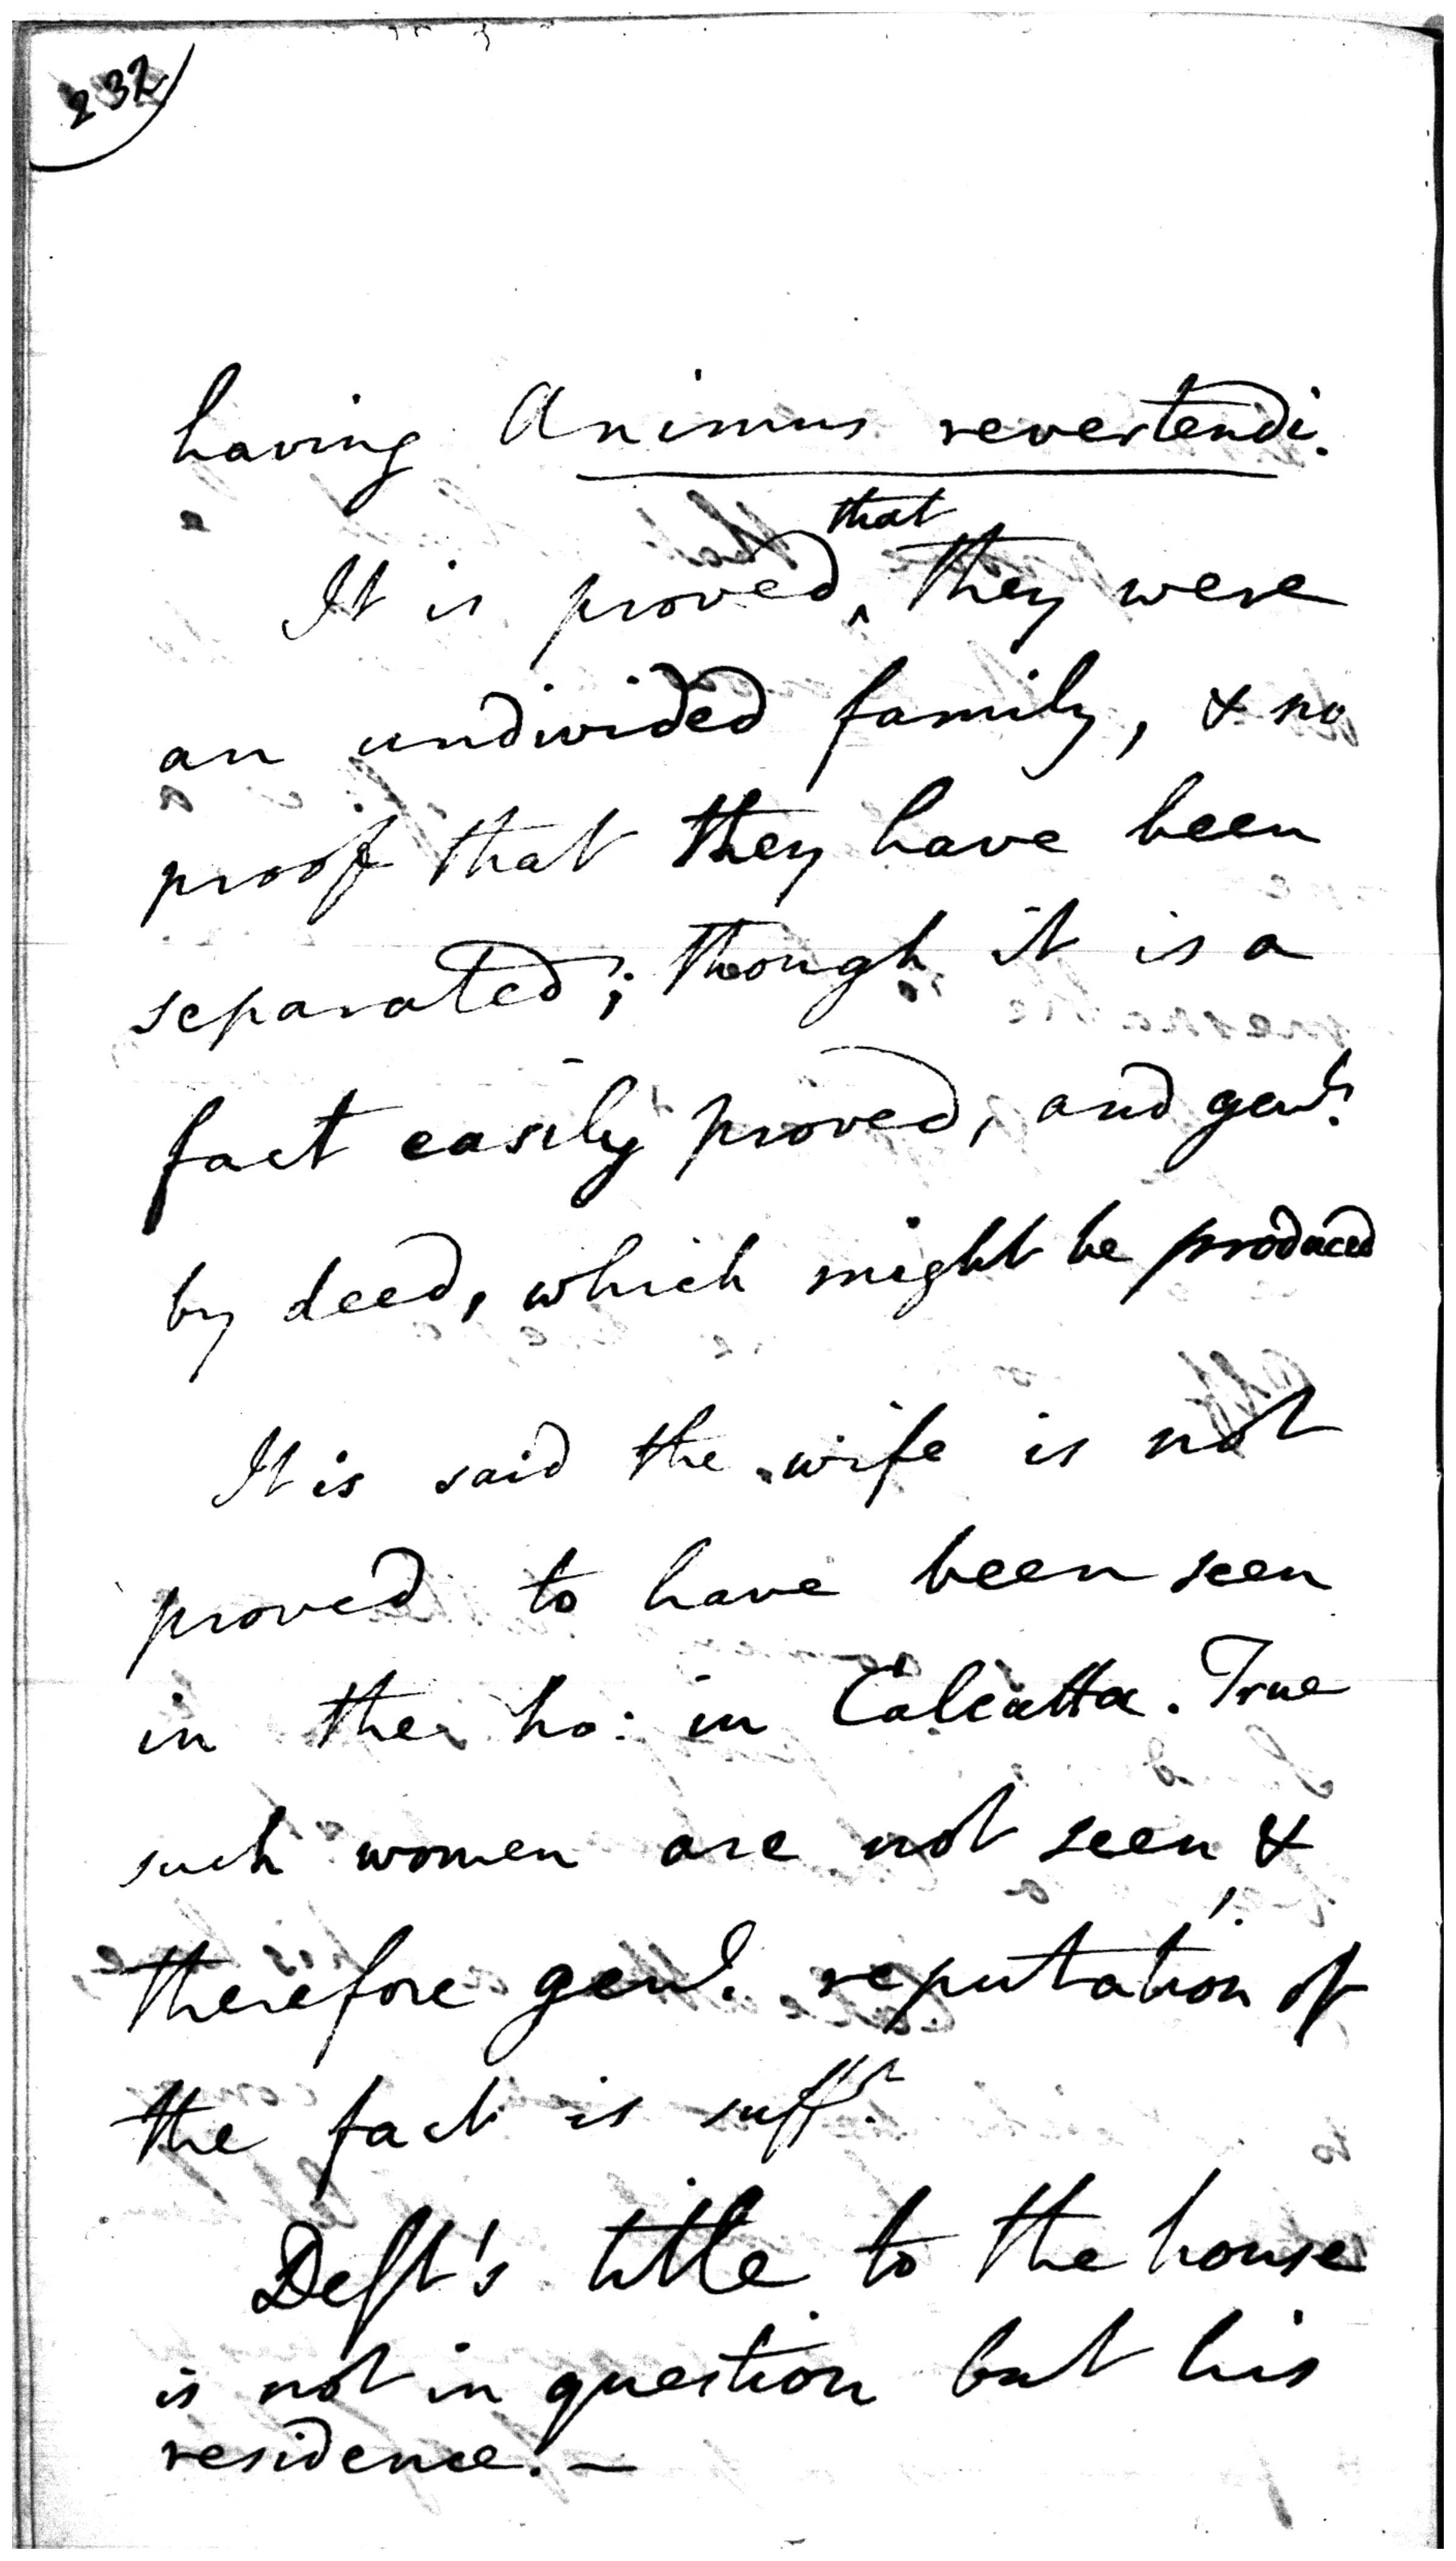 232
having Animus revertendi.
It is proved that they were
an undivided family, & no
proof that they have been
separated; though it is a
fact easily proved, and genly.
by deed, which might be produced
It is said the wife is not
proved to have been seen
in the ho: in Calcutta. True
such women are not seen, &
therefore genl. reputation of
the fact is sufft.
Deft's title to the house
is not in question but his
residence. —